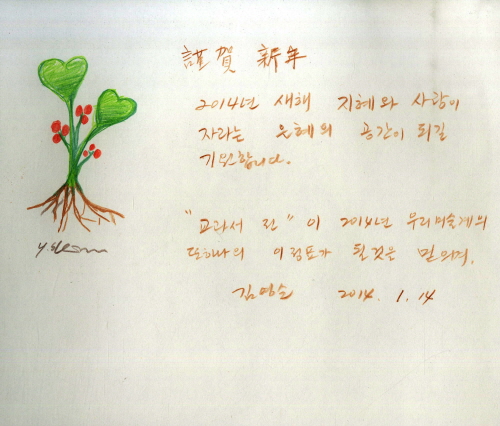 謹賀 新年
2014년 새해 지혜와 사랑이
자라는 은혜의 공간이 되길
기원합니다.
"교과서 전" 이 2014년 우리미술계의
또하나의 이정표가 될것은 믿으며,
김영순 2014. 1. 14